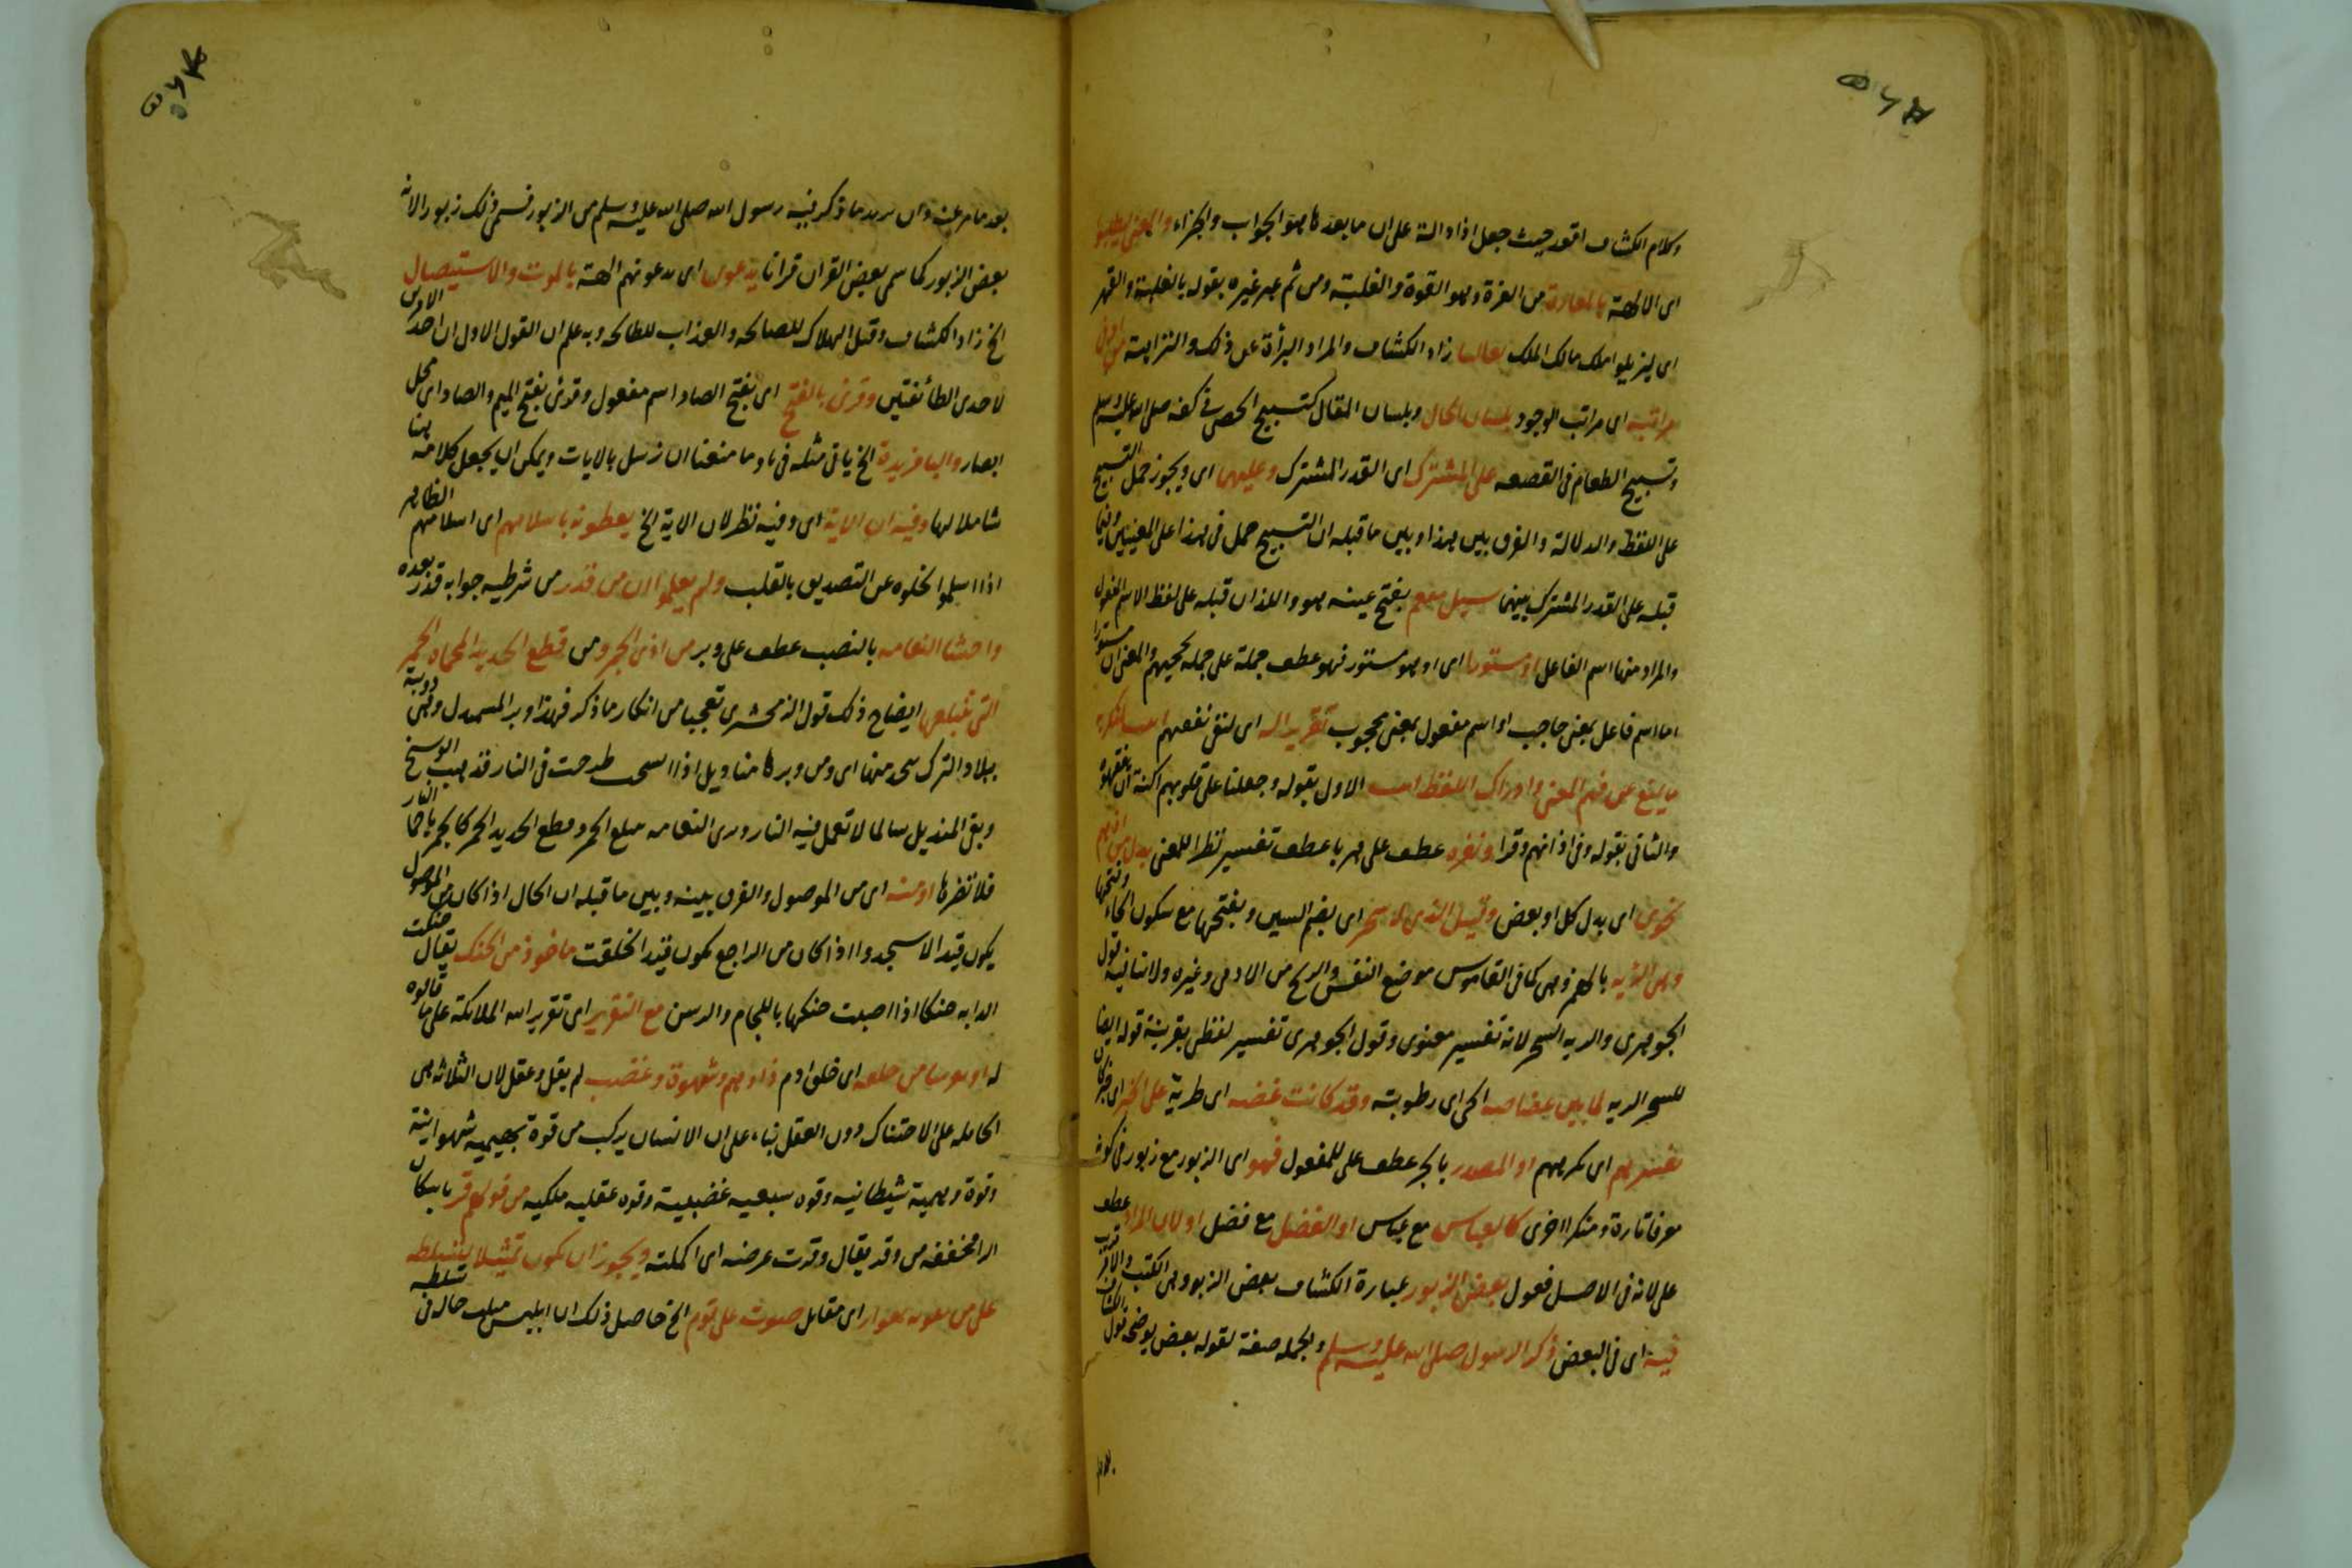 وكلام الكشاف اقعد حيث جعل اذا دالة على ان ما بعدها هو الجواب والجزاء والمعنى لطلبوا
اى الالهة بالمعازة من العزة وهو القوة والغلبة ومن ثم عبر غيره بقوله بالغلبة والقهر
اى ليزيلوا ملك مالك الملك تعاليا زاد الكشاف والمراد البرأة عن ذلك والنزاهة من ادنى
مراتبه اى مراتب الوجود بلسان الحال وبلسان المقال كتسبيح الحصى فى كفه صلى الله عليه وسلم
وتسبيح الطعام فى القصعه على المشترك اى القدر المشترك وعليهما اى ويجوز حمل التسبيح
على اللفظ والدلالة والفرق بين هذا وبين ما قبله ان التسبيح حمل فى هذا على المعنيين وفيما
قبله على القدر المشترك بينهما سيل مفعم بفتح عينه هو واللذان قبله على لفظ الاسم المفعول
والمراد منها اسم الفاعل او مستورا اى او هو مستور فهو عطف جملة على جمله والمعنى ان مستورا
اما اسم فاعل بمعنى حاجب او اسم مفعول بمعنى محجوب تقريرا له اى لنفى تفهمهم
ما يمنع عن فهم المعنى وادراك اللفظ الاول بقوله وجعلنا على قلوبهم اكنة ان يفقهوه
والثانى بقوله وفى اذانهم وقرا ونفره عطف على هربا عطف تفسير نظرا للمعنى بدل من اذهم
نجوى اى بدل كل او بعض وقيل الذى له سحر اى بضم السين وبفتحها مع سكون الحاء وفتحها
وهى الرية بالهمز وهى كما فى القاموس موضع النفس والريح من الادمى وغيره ولا تنافيه قول
الجوهرى والريه السحر لانه تفسير معنوى وقول الجوهرى تفسير لفظى بقرينة قوله ايضا
السحر الريه لما بين غضاضه الحى اى رطوبته وقد كانت غضه اى طرية على الخبر اى خبر كان
نفسرهم اى نكرههم او المصدر بالجر عطف على للمفعول فهو اى الزبور مع زبور فى كونه
معرفا تارة ومنكرا اخرى كالعباس مع عباس او الفضل مع فضل او لان المراد عطف
على لانه فى الاصل فعول بعض الزبور عبارة الكشاف بعض الزبور وهى الكتب
فيه اى فى البعض ذكر الرسول صلى الله عليه وسلم والجمله صفة لقوله بعض يوضحه قول الكشاف
بعد ما مر عنه وان يريد ما ذكر فيه رسول الله صلى الله عليه وسلم من الزبور فسمى ذلك زبورا لانه
بعض الزبور كما سمى بعض القران قرانا يدعون اى يدعونهم الهة بالموت والاستيصال
الخ زاد الكشاف وقيل الهلاك للصالحه والعذاب للطالحه وبه علم ان القول الاول ان احد الامرين
لاحدى الطائفتين وقرئ بالفتح اى بفتح الصاد اسم مفعول وقرئ بفتح الميم والصاد اى محل
ابصار والبا مزيدة الخ ياتى مثله فى وما منعنا ان نرسل بالايات ويمكن ان يجعل كلامه هنا
شاملا لها وفيه ان الاية اى وفيه نظر لان الاية الخ يعطونه باسلامهم اى اسلامهم الظاهر
اذا اسلموا لخلوه عن التصديق بالقلب ولم يعلموا ان من قدر من شرطيه جوابه قدر بعده
واحشا النعامه بالنصب عطف على وبر من اذى الجمر ومن قطع الحديد المحماة الحمر
التى تبتلعها ايضاح ذلك قول الزمخشرى تعجبا من انكار ما ذكر فهذا وبر السمندل وهى دويبة
ببلاد الترك يتخذ منها اى ومن وبرها مناديل اذا اتسخت طرحت فى النار فذهب الوسخ
وبقى المنديل سالما لا تعمل فيه النار وترى النعامه تبتلع الجمر وقطع الحديد الحمر كالجمر باحماء النار
فلا تضرها او منه اى من الموصول والفرق بينه وبين ما قبله ان الحال اذا كان من الموصول
يكون قيد الاسجد واذا كان من الراجع يكون قيد الخلقت ماخوذ من الحنك يقال حنكت
الدابه حنكا اذا اصبت حنكها باللجام والرسن مع التقرير اى تقرير الله الملائكة على ما قالوه
له او تفرسا من خلقه اى خلق ادم ذا وهم وشهوة وغضب لم يقل وعقل لان الثلاثه هى
الحامله على الاحتناك دون العقل بناء على ان الانسان يركب من قوة بهيميه شهوانية
وقوة وهمية شيطانيه وقوه سبعيه غضبية وقوه عقليه ملكيه من قولهم قر باسكان
الرا مخففه من وقد يقال وفرت عرضه اى اكملته ويجوز ان يكون تمثيلا لتسلطه
على من يغويه بمغوار اى مقاتل صوت على قوم الخ حاصل ذلك ان ابليس مثلت حاله فى تسلطه